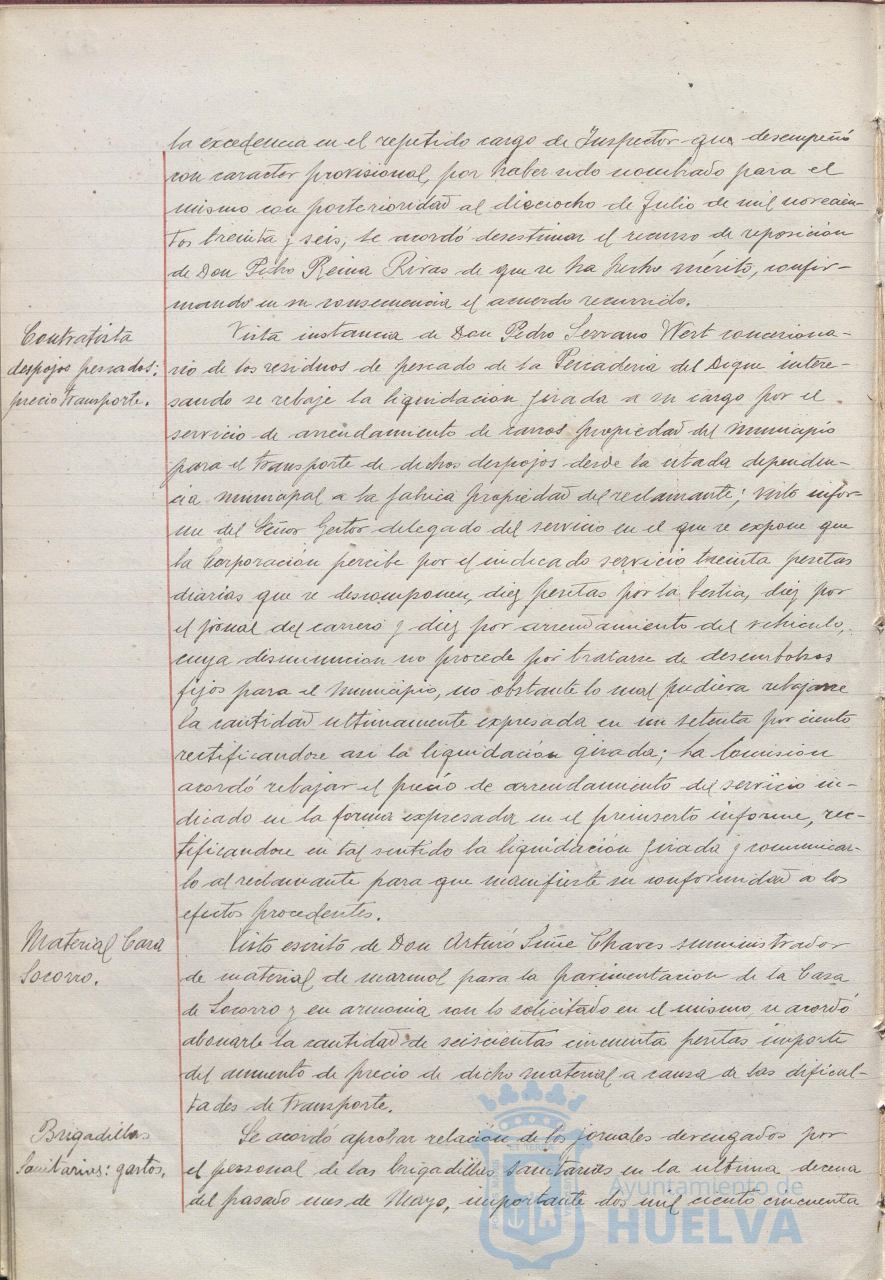 la excedencia en el repetido cargo de Inspector que desempeñó
con caracter provisional, por haber sido nombrado para el
mismo con posterioridad al dieciocho de Julio de mil novecien-
tos treinta y seis, se acordó desestimar el recurso de reposición
de Don Pedro Reina Rivas de que se ha hecho mérito, confir-
mando en su consecuencia el acuerdo recurrido.
Contratista
despojos pescados:
precio transporte.
Vista instancia de Don Pedro Serrano Wert concesiona-
rio de los residuos de pescado de la Pescaderia del Dique intere-
sando se rebaje la liquidación girada a su cargo por el
servicio de arrendamiento de carros propiedad del Municipio
para el transporte de dichos despojos desde la citada dependen-
cia municipal a la fabrica propiedad del reclamante; visto infor-
me del Señor Gestor delegado del servicio en el que se expone que
la Corporación percibe por el indicado servicio treinta pesetas
diarias que se descomponen, diez pesetas por la bestia, diez por
el jornal del carrero y diez por arrendamiento del vehiculo,
cuya disminucion no procede por tratarse de desembolsos
fijos para el Municipio, no obstante lo cual pudiera rebajarse
la cantidad ultimamente expresada en un setenta por ciento
rectificandose asi la liquidación girada; La Comision
acordó rebajar el precio de arrendamiento del servicio in-
dicado en la forma expresada en el preinserto informe, rec-
tificandose en tal sentido la liquidación girada y comunicar-
lo al reclamante para que manifieste su conformidad a los
efectos procedentes.
Material Casa
Socorro.
Visto escrito de Don Arturo Siñe Chaves suministrador
de material de marmol para la pavimentacion de la Casa
de Socorro y en armonia con lo solicitado en el mismo, se acordó
abonarle la cantidad de seiscientas cincuenta pesetas importe
del aumento de precio de dicho material a causa de las dificul-
tades de transporte.
Brigadillas
Sanitarias: gastos.
Se acordó aprobar relación de los jornales devengados por
el personal de las brigadillas sanitarias en la ultima decena
del pasado mes de Mayo, importante dos mil ciento cincuenta
Ayuntamiento de
HUELVA